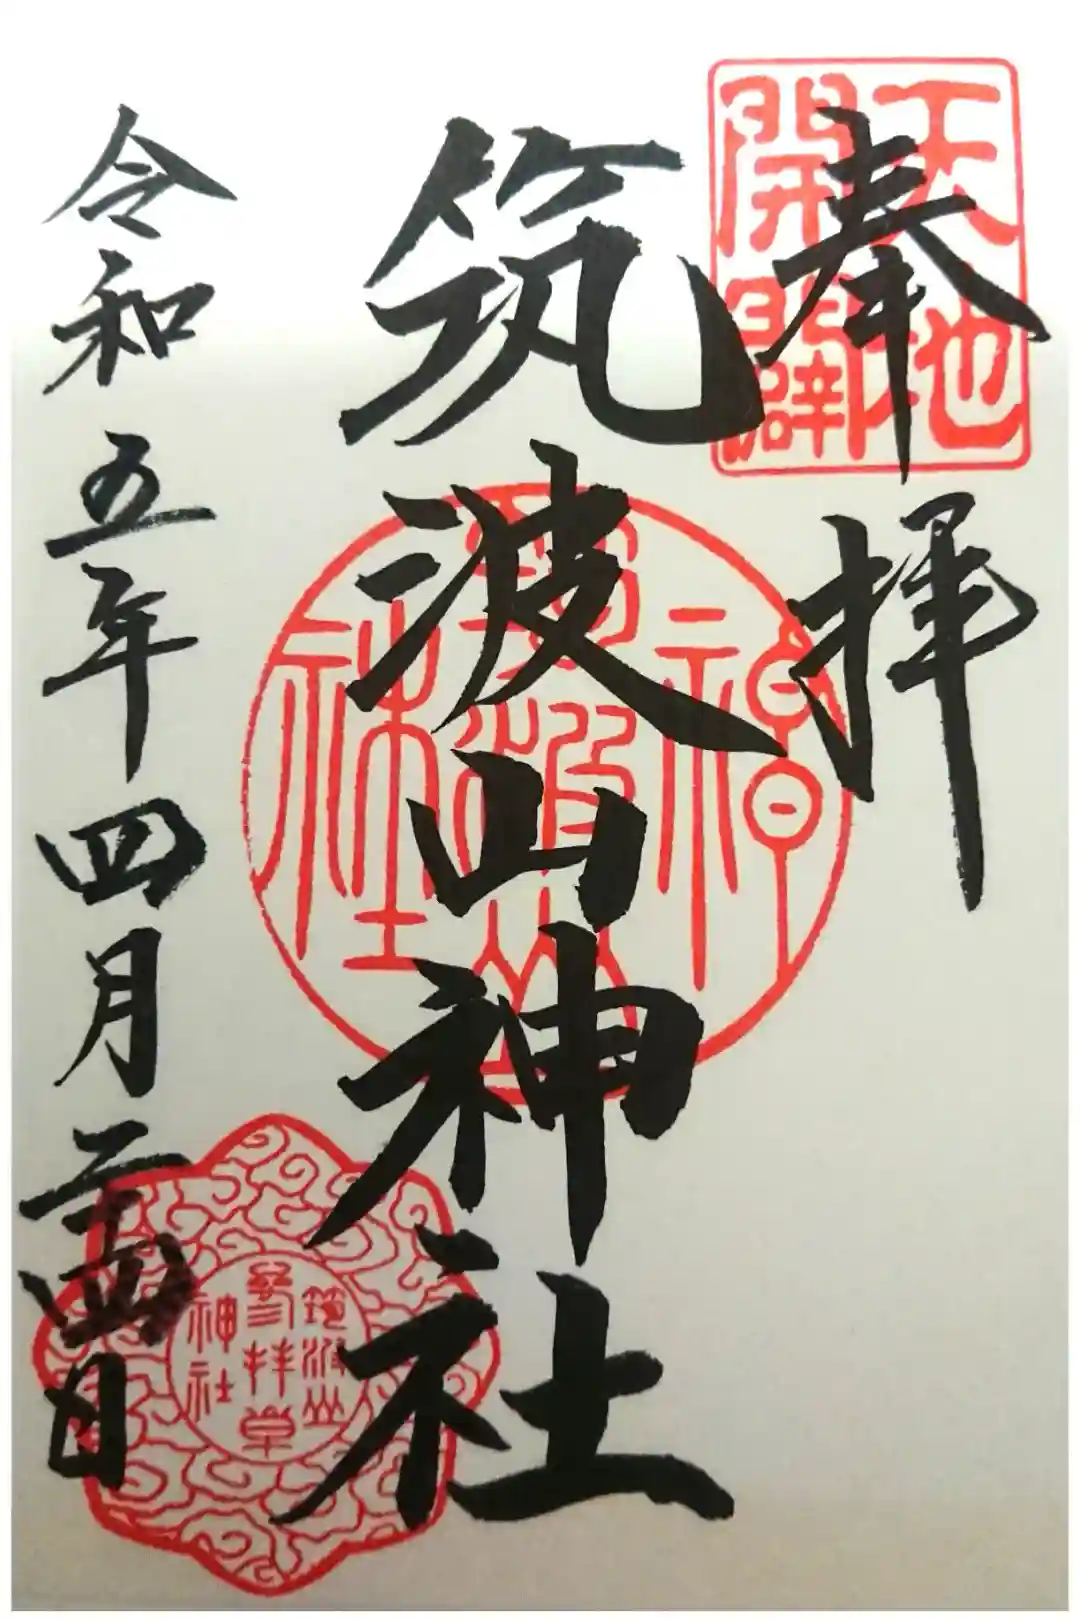 奉拝
天地
開闢
筑波山神社
筑波山
神社
令和五年四月二十四日
筑波山
参拝章
神社